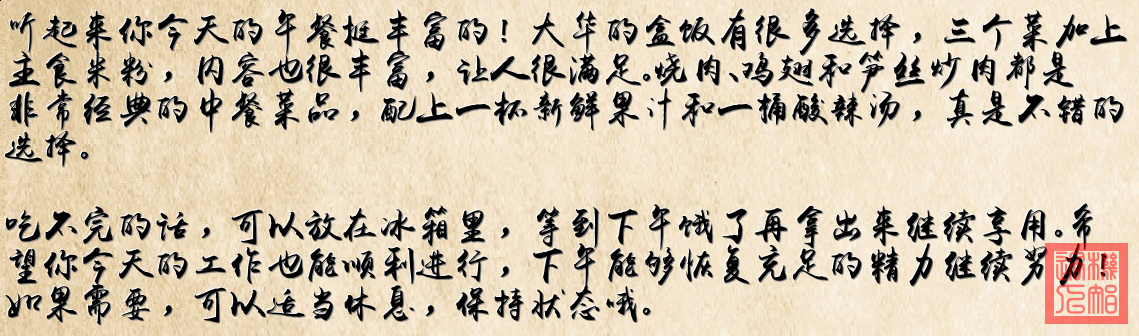 听起来你今天的午餐挺丰富的！大华的盒饭有很多选择，三个菜加上
主食米粉，内容也很丰富，让人很满足。烧肉、鸡翅和笋丝炒肉都是
非常经典的中餐菜品，配上一杯新鲜果汁和一桶酸辣汤，真是不错的
选择。
吃不完的话，可以放在冰箱里，等到下午饿了再拿出来继续享用。希
望你今天的工作也能顺利进行，下午能够恢复充足的精力继续努力！
如果需要，可以适当休息，保持状态哦。